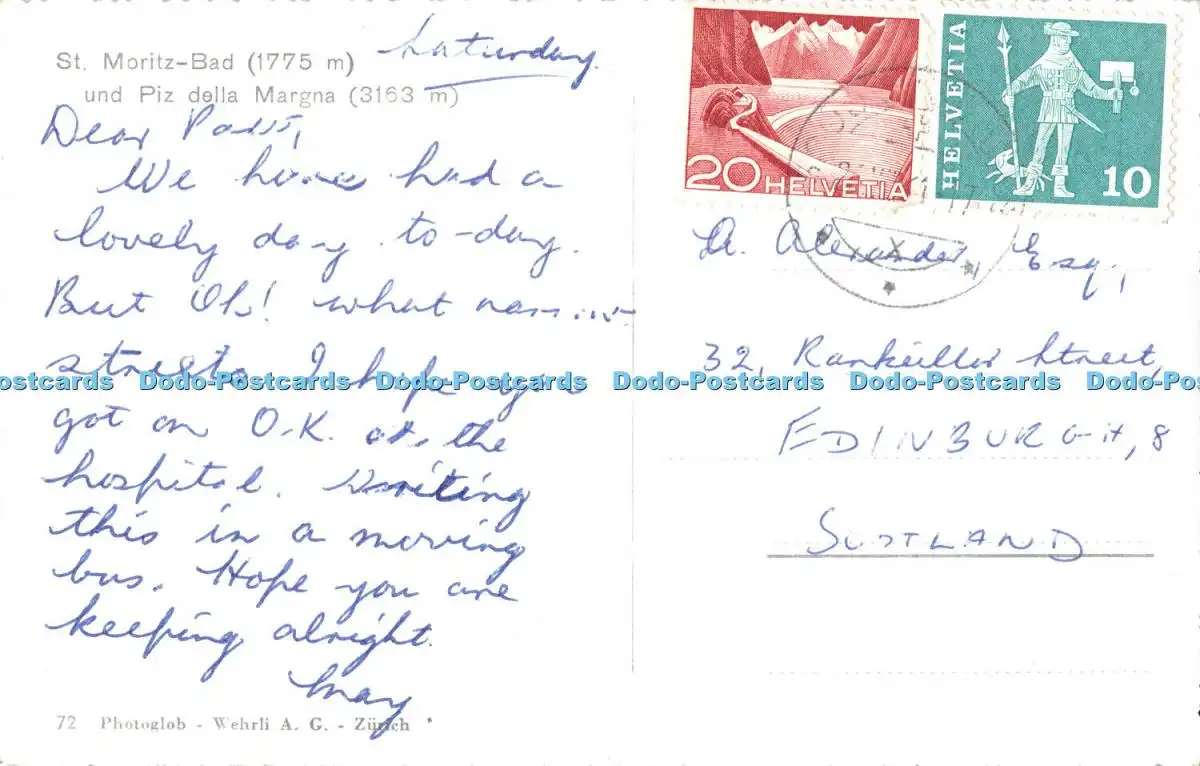 St. Moritz-Bad (1775 m)
und Piz della Margna (3163 m)
Saturday.
Dear
We have had a
lovely day to-day.
But Oh! what
streets I hope you
got on O.K. at the
hospital. Writing
this in a moving
bus. Hope you are
keeping alright.
May
72 Photoglob - Wehrli A. G. - Zürich
20 HELVETIA
HELVETIA 10
A. Alexander, Esq.,
32, Rankeillor Street,
EDINBURGH, 8
SCOTLAND
Dodo-Postcards Dodo-Postcards Dodo-Postcards Dodo-Postcards Dodo-Postcards